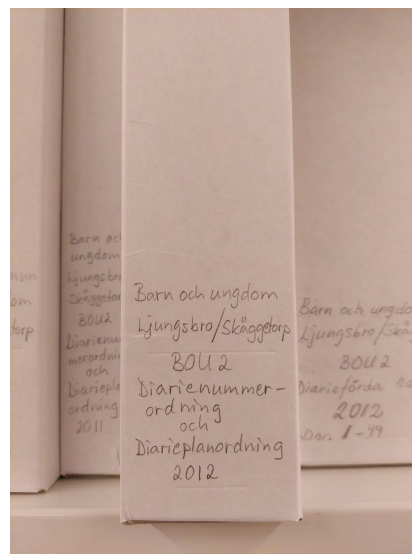 om
torp
Barn och
ungdom
Ljungsbro
Skäggetorp
BOU2
Diarienum
merordning
och
Diariepla
ordning
2011
Barn och ungdom
Ljungsbro/Skäggetorp
BOU 2
Diarienummer-
ordning
och
Diarieplanordning
2012
Barn och ungdo
Ljungsbro/Skä
BOU 2
Diarieförda
2012
Dnr. 1-49